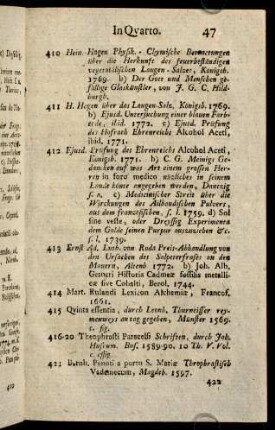 In Quarto. 47
410 Hein. Hagen Physik.-Chymische Bemerkungen
über die Herkunft des feuerbeständigen
vegetabilischen Laugen-Salzes, Königsb.
1769. b) Der Gott und Menschen ge-
fällige Glaskünstler, von J. G. C. Hild-
burgh.
411 H. Hagen über das Laugen-Salz, Königsb. 1769.
b) Ejusd. Untersuchung einer blauen Farb-
erde, ibid. 1772. c) Ejusd. Prüfung
des Hofrath Ehrenreichs Alcohol Aceti,
ibid. 1771.
412 Ejusd. Prüfung des Ehrenreichs Alcohol Aceti,
Königsb. 1771. b) C. G. Meinigs Ge-
dancken auf was Art einem grossen Her-
ren in foro medico nützliches in seinem
Lande könne angegeben werden, Dantzig
s. a. c) Medicinischer Streit über die
Würckungen des Ailhoudischen Pulvers,
aus dem französischen, s. l. 1759. d) Sol
sine veste, oder Dreyssig Experimenta
dem Golde seinen Purpur auszuziehen &c.
s. l. 1739.
413 Ernst Ad. Luth. von Roda Preis-Abhandlung von
den Ursachen des Salpeterfrasses an den
Mauern, Altenb. 1772. b) Joh. Alb.
Gesneri Historia Cadmiæ fossilis metalli-
cæ sive Cobalti, Berol. 1744.
414 Mart. Rulandi Lexicon Alchemiæ, Francof.
1661.
415 Quinta essentia, durch Leonh. Thurneisser rey-
menweys an tag gegeben, Münster 1569.
c. fig.
416-20 Theophrasti Paracelsi Schriften, durch Joh.
Huserum. Bas. 1589.90. 10 Th. V. Vol.
c. effig.
421 Bernh. Penoti a portu S. Mariæ Theophrastisch
Vademecum, Magdeb. 1597.
422